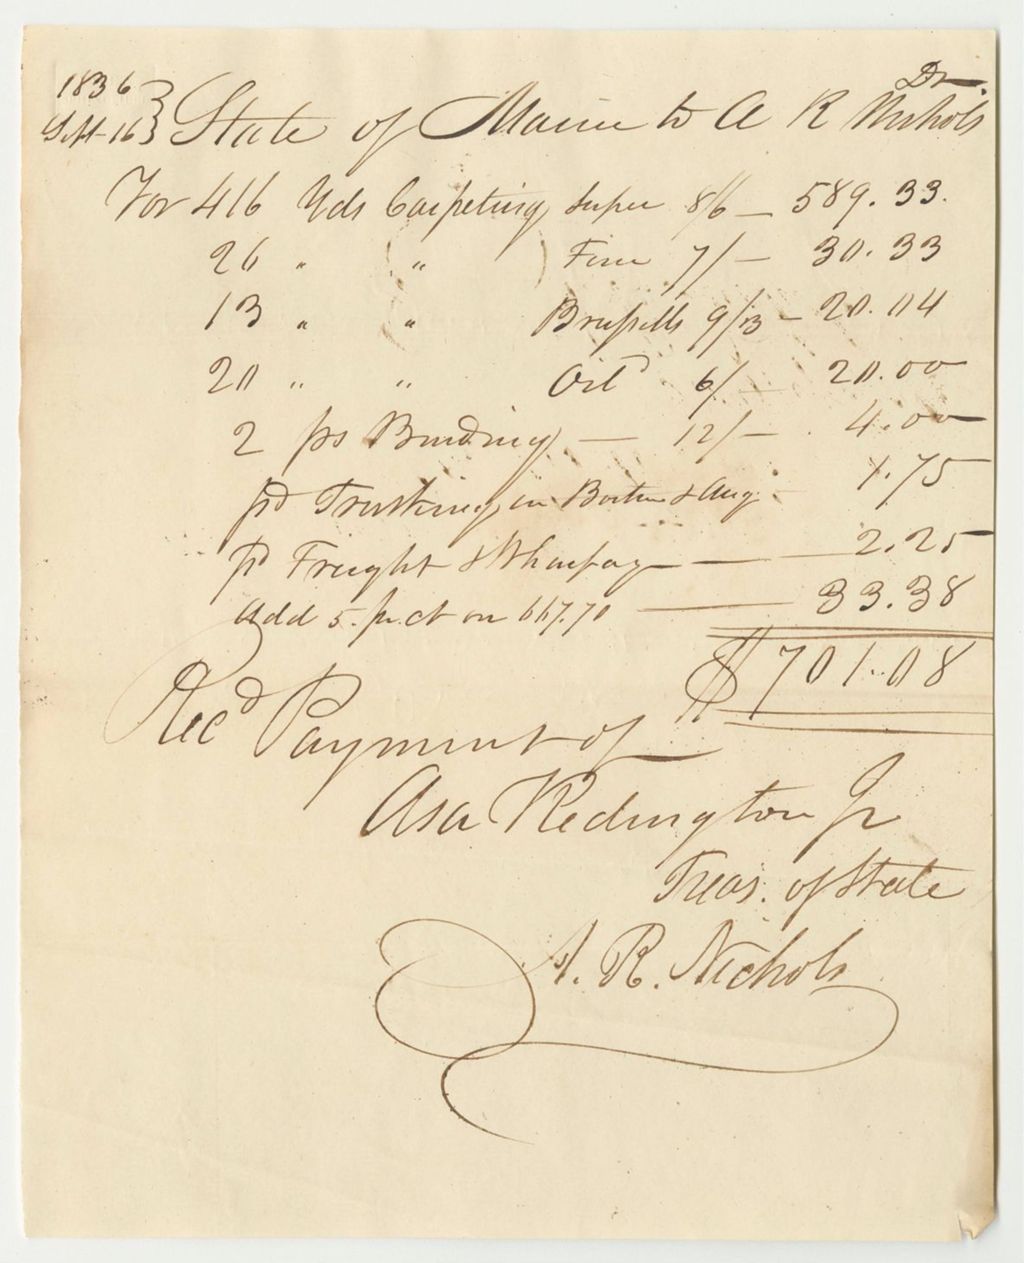 1836 Dr.
Sept 16 State of Maine to A R Nichols
For 416 Yds Carpeting Super 8/6 — 589.33.
26 " " Fine 7/ — 30.33
13 " " Brussells 9/3 — 20.04
20 " " Oild 6/ — 20.00
2 ps Binding — 12/ — 4.00
pd Trucking in Boston & Aug 1.75
pd Freight & Wharfage — 2.25
Add 5. pr. ct on 667.70 — 33.38
$701.08
Recd Payment of
Asa Redington Jr
Treas. of State
A. R. Nichols